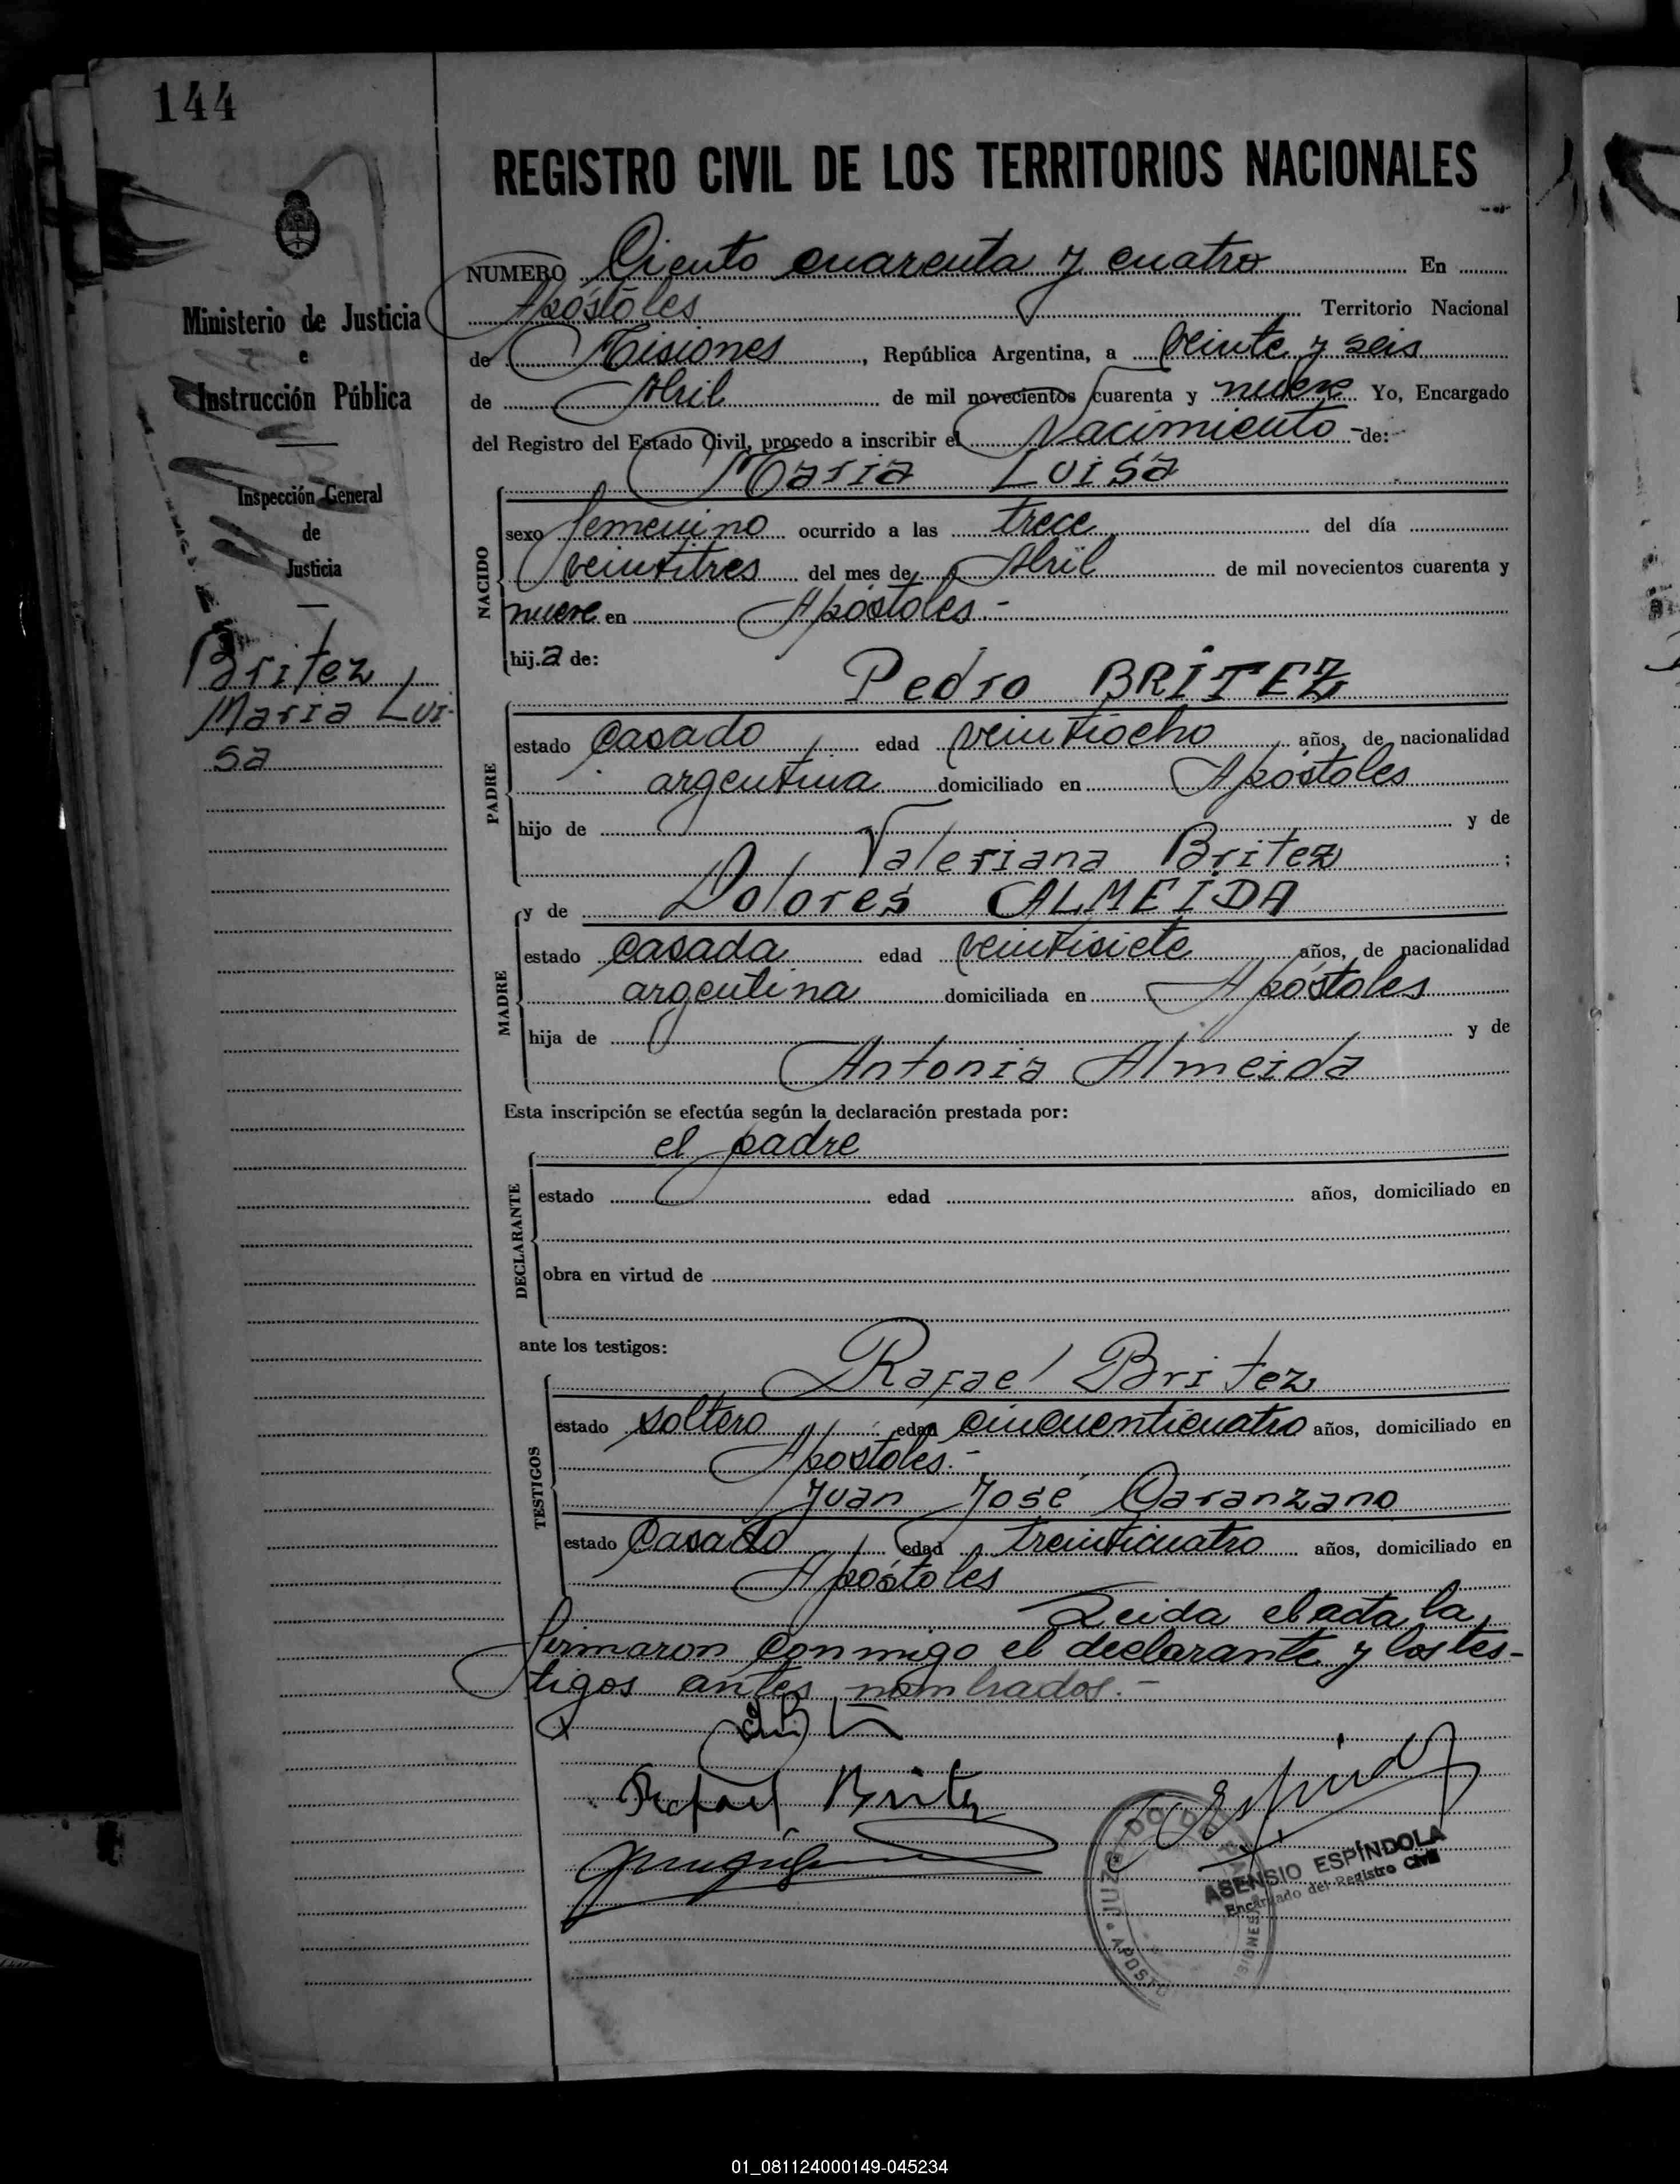 144
REGISTRO CIVIL DE LOS TERRITORIOS NACIONALES
Ministerio de Justicia
e
Instrucción Pública
Inspección General
de
Justicia
Britez
Maria Lui-
sa
NUMERO Ciento cuarenta y cuatro En
Apóstoles Territorio Nacional
de Misiones, República Argentina, a veinte y seis
de Abril de mil novecientos cuarenta y nueve Yo, Encargado
del Registro del Estado Civil, procedo a inscribir el Nacimiento - de:-
Maria Luisa
NACIDO
sexo femenino ocurrido a las trece del día
veintitres del mes de Abril de mil novecientos cuarenta y
nueve en Apóstoles.-
hija de:
Pedro BRITEZ
PADRE
estado casado edad veintiocho años, de nacionalidad
argentina domiciliado en Apóstoles
hijo de y de
Valeriana Britez;
y de Dolores ALMEIDA
MADRE
estado casada edad veintisiete años, de nacionalidad
argentina domiciliada en Apóstoles
hija de y de
Antonia Almeida
Esta inscripción se efectúa según la declaración prestada por:
el padre
DECLARANTE
estado edad años, domiciliado en
obra en virtud de
ante los testigos:
Rafael Britez
TESTIGOS
estado soltero edad cincuenticuatro años, domiciliado en
Apostoles.-
Juan José Garanzano
estado casado edad treinticuatro años, domiciliado en
Apóstoles
Leida el acta la
firmaron conmigo el declarante y los tes-
tigos antes nombrados.-
Rafael Britez
JUZGADO DE PAZ
APOSTO
SIONES
ASENSIO ESPÍNDOLA
Encargado del Registro Civil
01_081124000149-045234